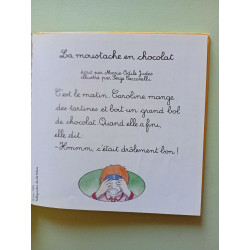 La moustache en chocolat
écrit par Marie-Odile Judes
illustré par Serge Ceccarelli
C'est le matin. Caroline mange
des tartines et boit un grand bol
de chocolat. Quand elle a fini,
elle dit :
-Hmmm, c'était drôlement bon !